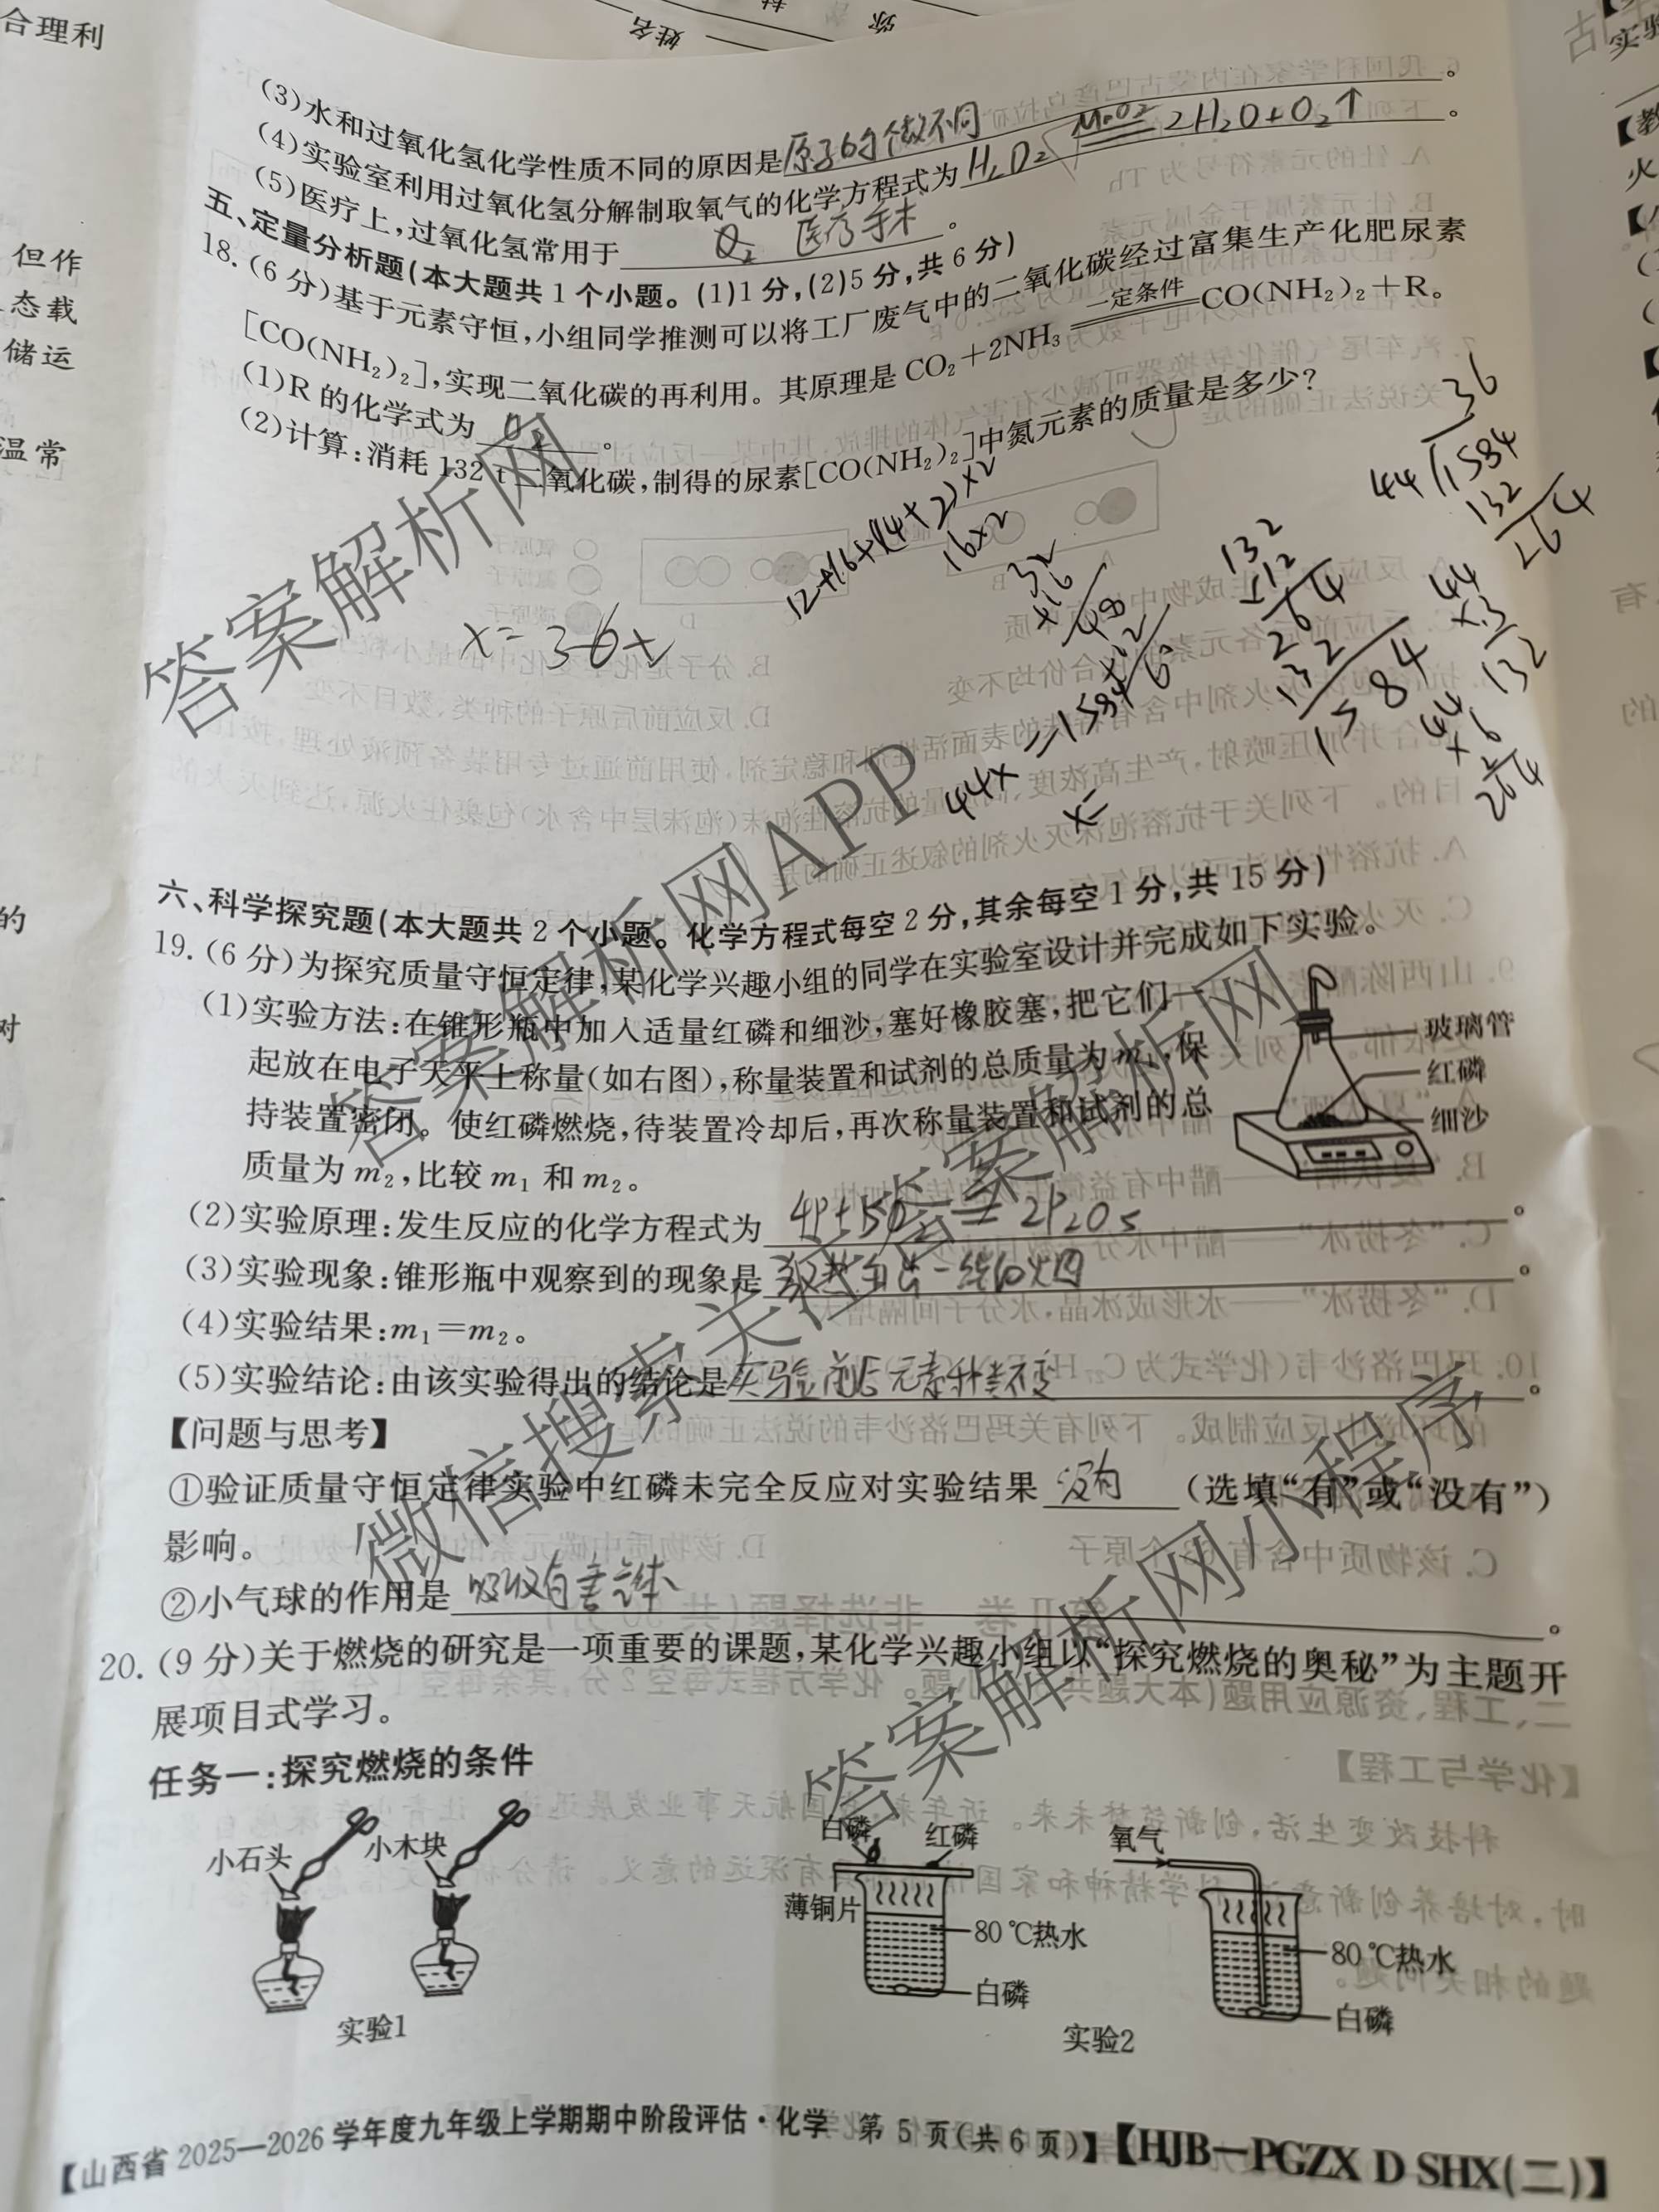 合理利
但作
态载
储运
温常
的
对
姓名
(3)水和过氧化氢化学性质不同的原因是原子的个数不同。
(4)实验室利用过氧化氢分解制取氧气的化学方程式为H2O2 MnO2 2H2O+O2↑。
(5)医疗上,过氧化氢常用于 医疗手术。
五、定量分析题(本大题共1个小题。(1)1分,(2)5分,共6分)
18.(6分)基于元素守恒,小组同学推测可以将工厂废气中的二氧化碳经过富集生产化肥尿素
[CO(NH₂)₂],实现二氧化碳的再利用。其原理是CO₂+2NH₃ 一定条件 CO(NH₂)₂+R。
(1)R的化学式为O2。
(2)计算:消耗132 t二氧化碳,制得的尿素[CO(NH₂)₂]中氮元素的质量是多少?
12+16+(14+2)×2
16×2
32
+16
48
x=36t
44x=1584
x=
132
×12
264
132
1584
36
44 1584
132
264
44
×3
132
44
×6
264
六、科学探究题(本大题共2个小题。化学方程式每空2分,其余每空1分,共15分)
19.(6分)为探究质量守恒定律,某化学兴趣小组的同学在实验室设计并完成如下实验。
(1)实验方法:在锥形瓶中加入适量红磷和细沙,塞好橡胶塞,把它们一
起放在电子天平上称量(如右图),称量装置和试剂的总质量为m₁,保
持装置密闭。使红磷燃烧,待装置冷却后,再次称量装置和试剂的总
质量为m₂,比较m₁和m₂。
玻璃管
红磷
细沙
(2)实验原理:发生反应的化学方程式为 4P+5O2 = 2P2O5。
(3)实验现象:锥形瓶中观察到的现象是
(4)实验结果:m₁=m₂。
(5)实验结论:由该实验得出的结论是实验前后元素种类不变。
【问题与思考】
①验证质量守恒定律实验中红磷未完全反应对实验结果 没有 (选填“有”或“没有”)
影响。
②小气球的作用是 吸收有害气体。
20.(9分)关于燃烧的研究是一项重要的课题,某化学兴趣小组以“探究燃烧的奥秘”为主题开
展项目式学习。
任务一:探究燃烧的条件
小石头
小木块
实验1
白磷
红磷
薄铜片
80 ℃热水
白磷
氧气
80 ℃热水
白磷
实验2
【山西省2025—2026学年度九年级上学期期中阶段评估·化学 第5页(共6页)】【HJB—PGZX D SHX(二)】
答案解析网
答案解析网APP
答案解析网
微信搜索关注答案解析网
答案解析网小程序